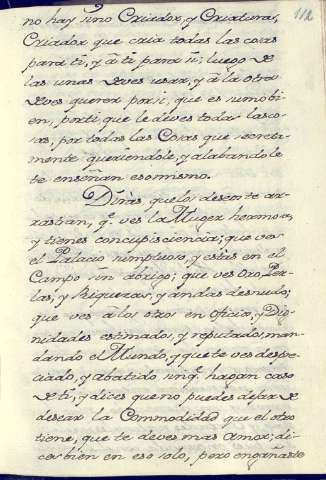 112
no hay sino Criador, y Criaturas,
Criador que cria todas las cosas
para ti, y à ti para si; luego de
las unas deves usar, y à la otra
deves querer por si, que es sumo bi-
en, por ti que le deves todas las co-
sas, por todas las Cosas que secreta-
mente queriendole, y alabandole
te enseñan eso mismo.
Dirás que los deseos te ar-
rastran, q.e ves la Muger hermosa,
y tienes concupisciencia; que ves
el Palacio sumptuoso, y estas en el
Campo sin abrigo; que ves Oro, Per-
las, y Riquezas, y andas desnudo;
que ves à los otros en oficios, y Dig-
nidades estimados, y reputados, man-
dando el Mundo, y que te ves despre-
ciado, y abatido sin q.e hagan caso
de ti, y dices que no puedes dejar de
desear la Commodidad que el otro
tiene, que te deves mas Amor; di-
ces bien en eso solo, pero engañaste